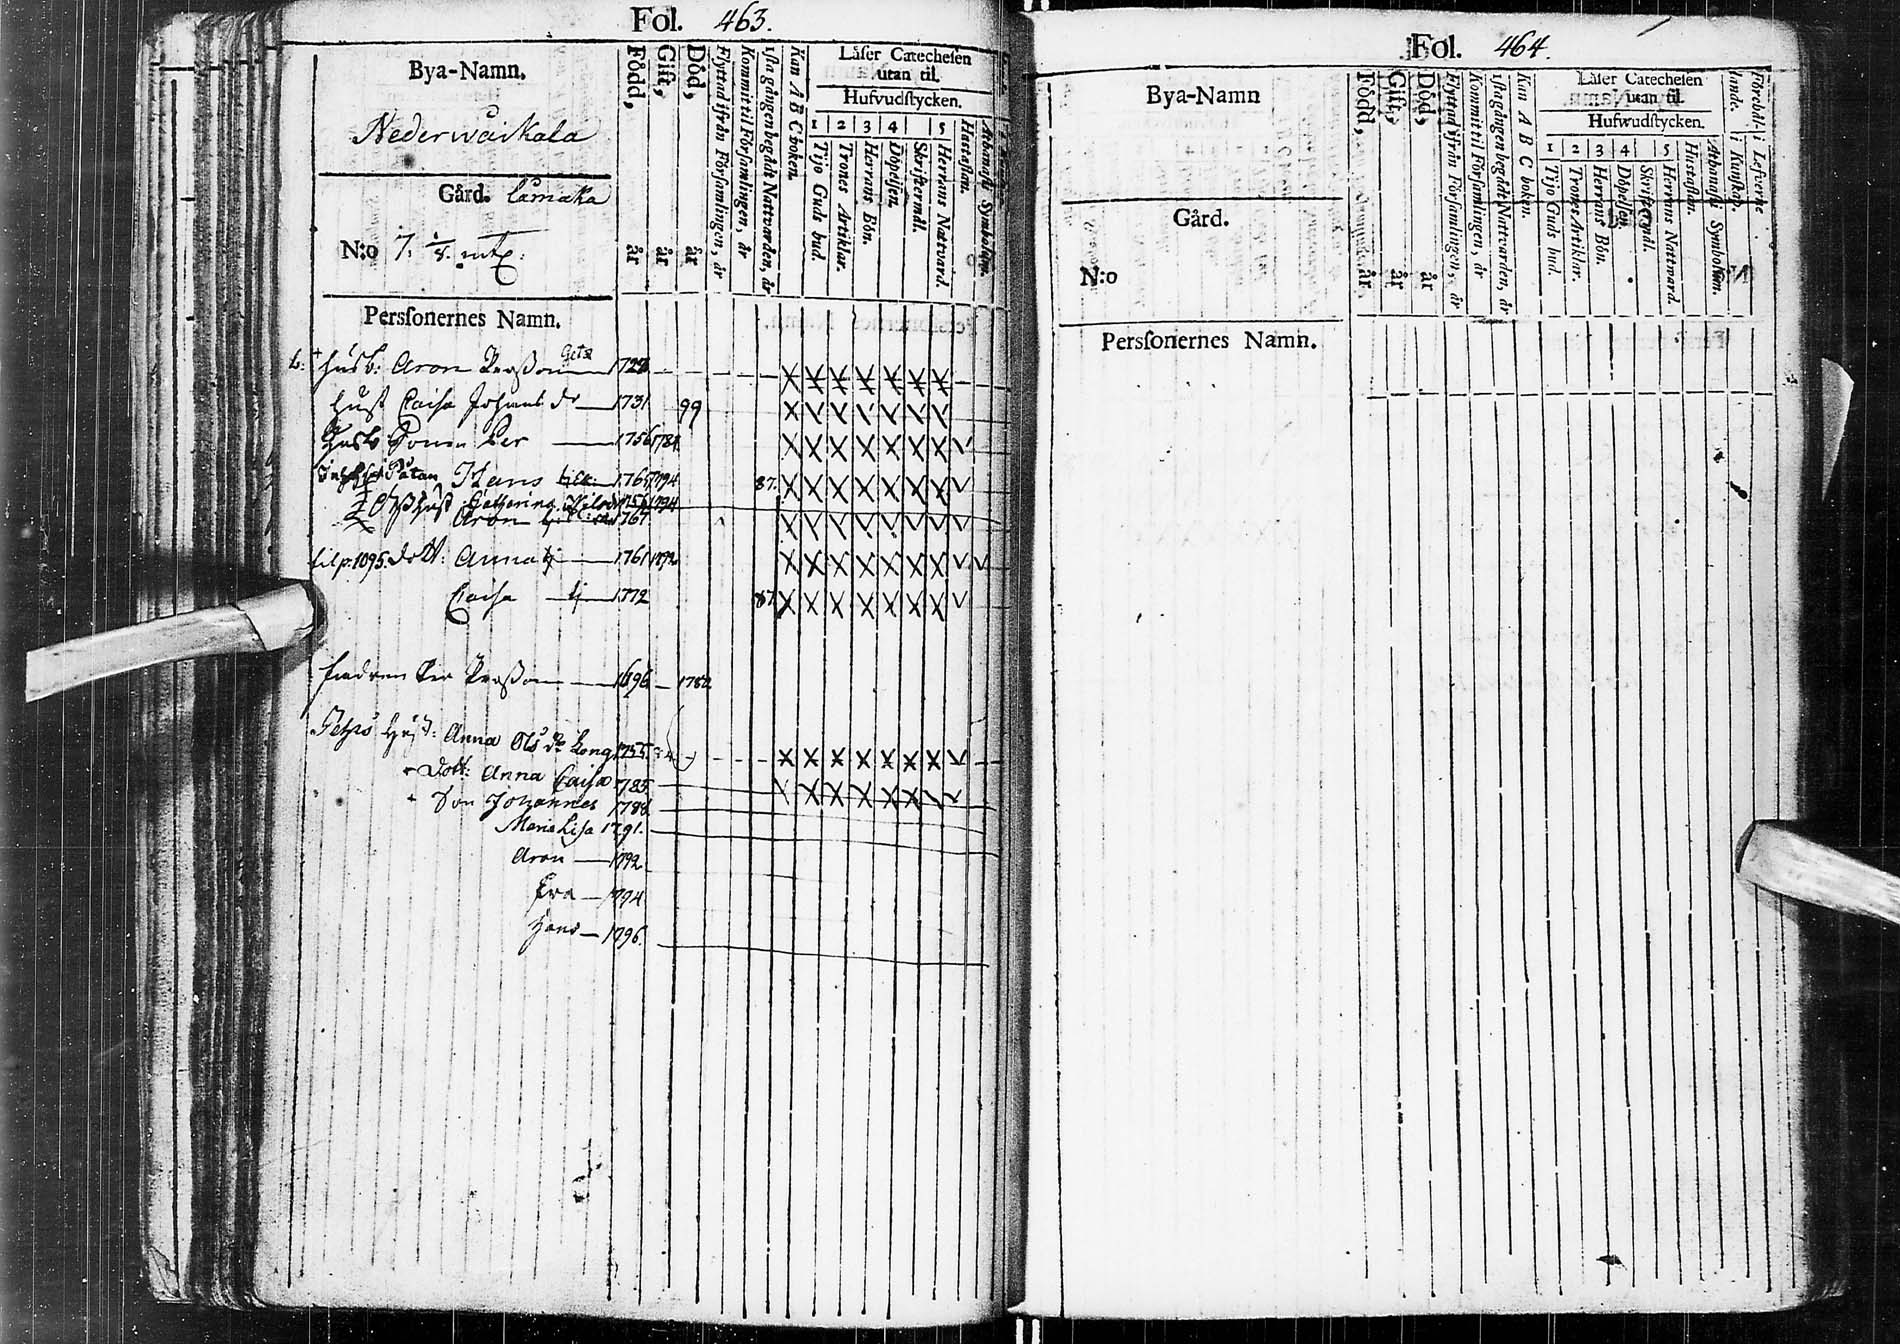 Fol. 463.
Bya-Namn.
Nederwäikala
Gård. Lamaka
N:o 7.
Född, år
Gift, år
Död, år
Flyttad ifrån Församlingen, år
Kommit til Församlingen, år
1sta gången begådt Nattvarden, år
Kan A B C boken.
Läser Catechesen
utan til.
Hufvudstycken.
1 2 3 4 5
Tijo Guds bud.
Trones Artiklar.
Herrans Bön.
Döpelsen.
Skriftermål.
Herrans Nattvard.
Hustaflan.
Athanasii Symbolum.
Personernes Namn.
Husb: Aron Persson 1722
Hust Caisa Johans dr 1731 99
Per 1756 1784
Hans 1765 1794 87.
Catharina 1756 1794
Aron 1767
dott: Anna 1761 1792
Caisa 1772 87.
Fadren Per Persson 1696 1782
Hust: Anna Ols dr 1755
Dott: Anna Caisa 1785
Son Johannes 1788
Maria Lisa 1791.
Aron 1792
Eva 1794
Hans 1796.
Fol. 464.
Bya-Namn
Gård.
N:o
Född, år
Gift, år
Död, år
Flyttad ifrån Församlingen, år
Kommit til Församlingen, år
1sta gången begådt Nattvarden, år
Kan A B C boken.
Läser Catechesen
utan til.
Hufwudstycken.
1 2 3 4 5
Tijo Guds bud.
Trones Artiklar.
Herrans Bön.
Döpelsen.
Skriftermål.
Herrans Nattward.
Hustaflan.
Athanasii Symbolum.
Förehållande.
i Kunskap.
i Lefverne
Personernes Namn.